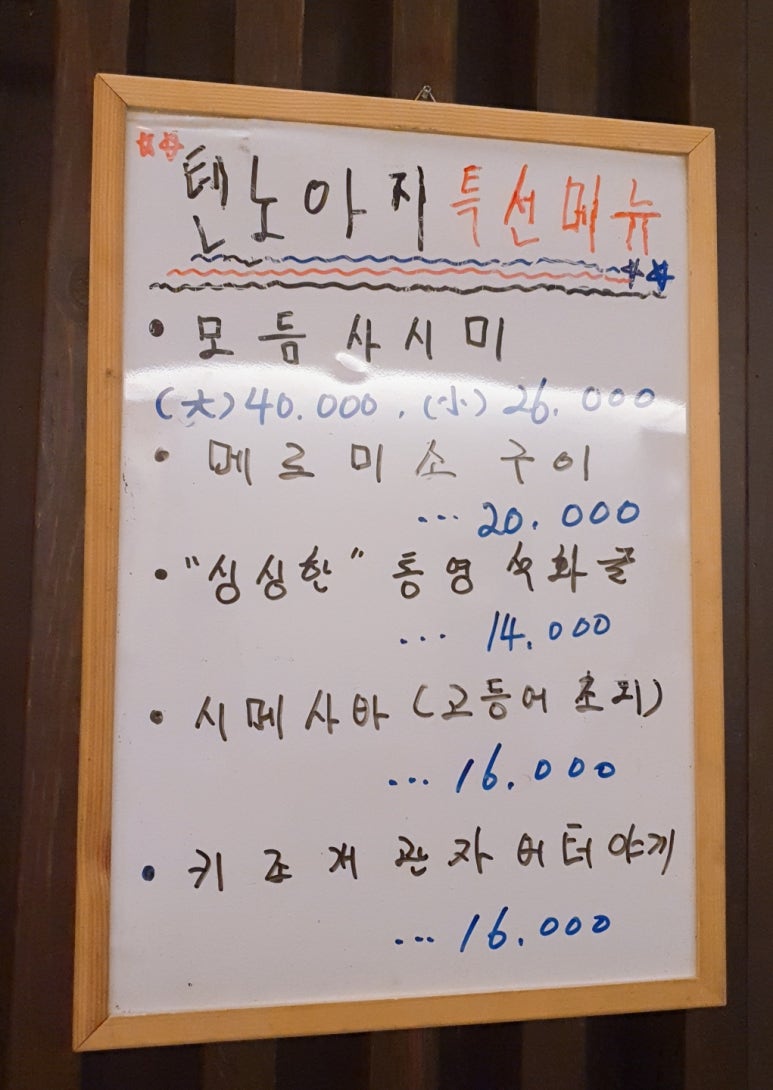 텐노아지 특선메뉴
• 모듬사시미
(大) 40.000, (小) 26.000
• 메로미소구이
... 20.000
• "싱싱한" 통영석화굴
... 14.000
• 시메사바 (고등어초지)
... 16.000
• 키조개관자버터야끼
... 16.000